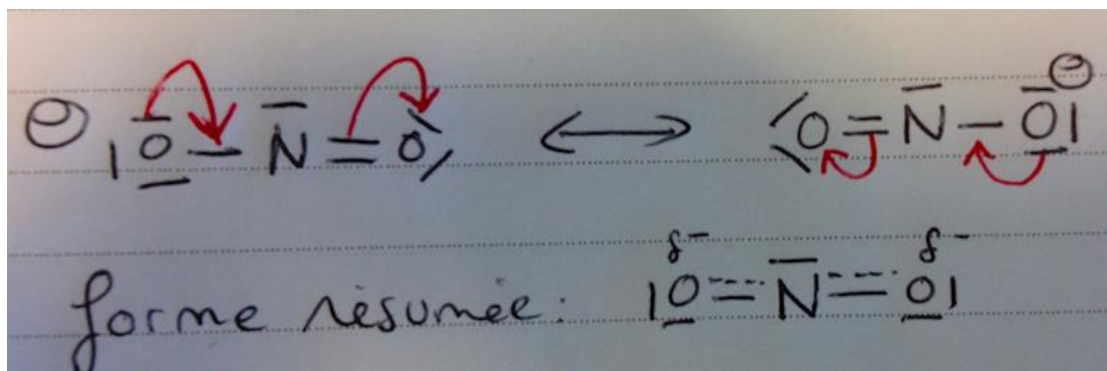 ⊖ |O̲̅ — N̅ = O⟩ ⟷ ⟨O = N̅ — O̲̅|⊖
forme résumée: |O̲ ═ N̅ ═ O̲| δ- δ-